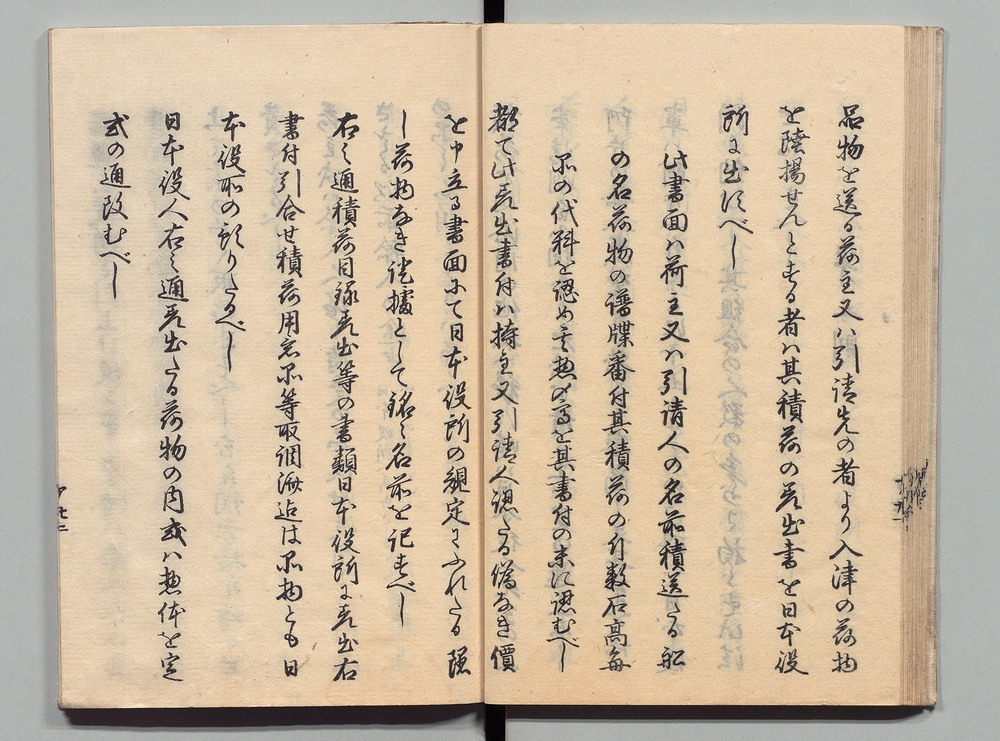 品物を送る荷主又ハ引請先の者より入津の荷物
を陸揚せんとする者ハ其積荷の差出書を日本役
所に出すべし
此書面ハ荷主又ハ引請人の名前積送たる船
の名荷物の譜牒番付其積荷の行数石高毎
品の代料を認め其惣〆高を其書付の末に認むべし
都て此差出書付ハ持主又引請人認たる偽なき價
を申立る書面にて日本役所の規定にふれたる隠
し荷物なき證據として銘々名前を記すべし
右之通積荷目録差出等の書類日本役所に差出右
書付引合せ積荷用意品等取調濟迄は品物とも日
本役所の預りたるべし
日本役人右之通差出たる荷物の内或ハ惣体を定
式の通改むべし